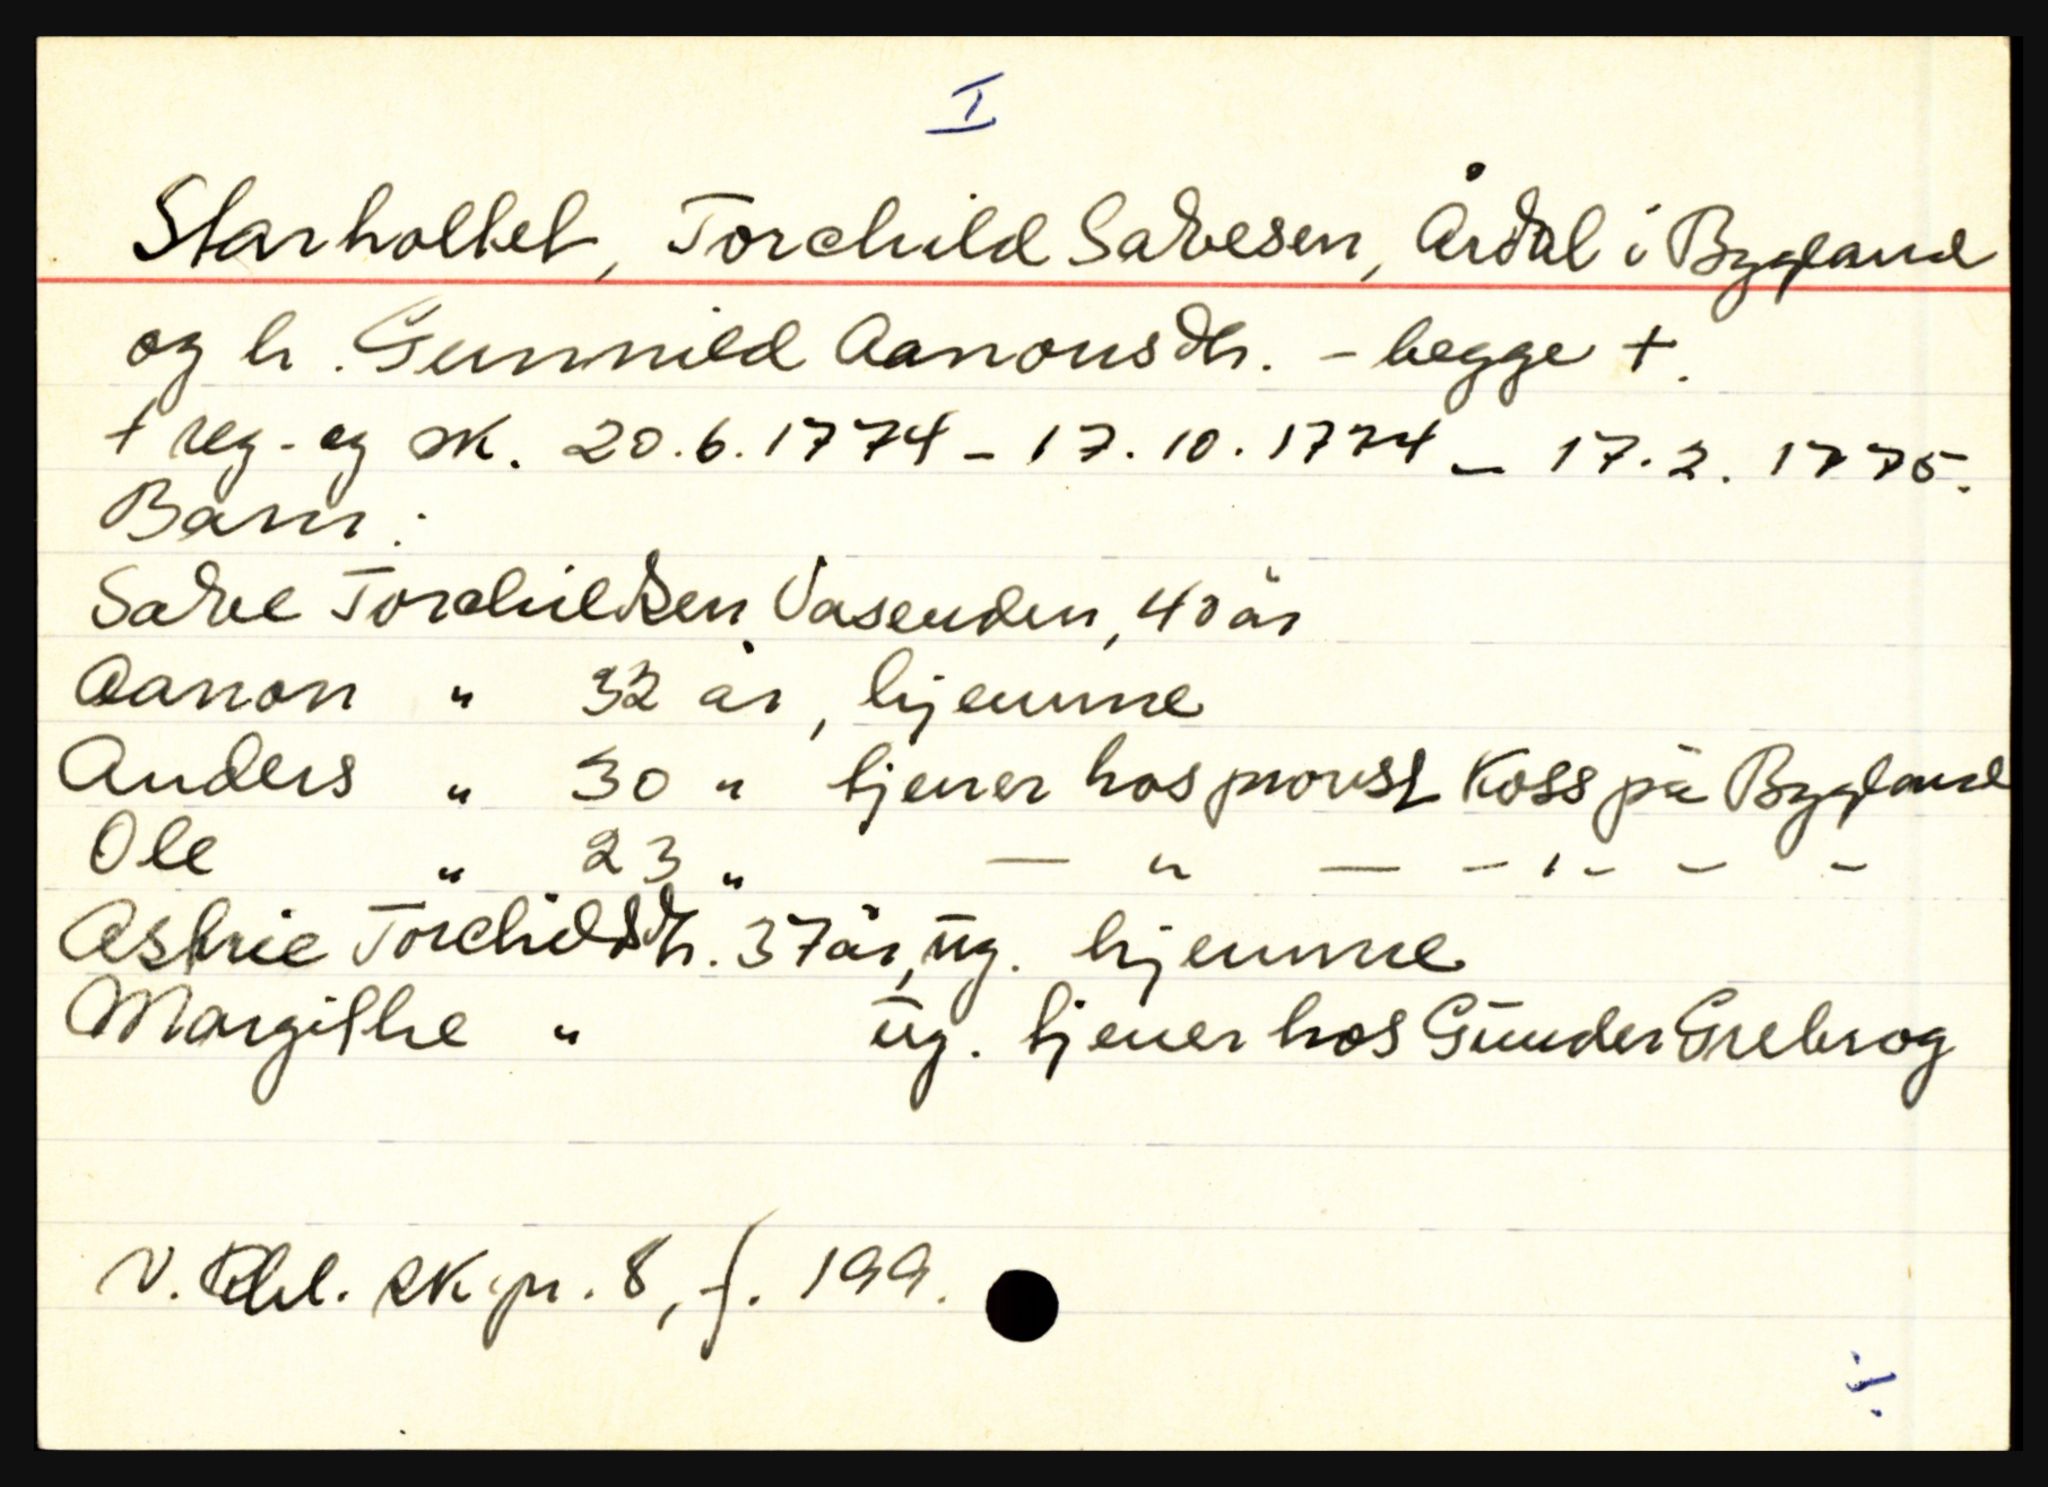 I
Starholtet, Torchild Salvesen, Årdal i Bygland
og h. Gunnild Aanonsdtr. - begge +.
+ reg- og sk. 20.6.1774 - 17.10.1774 - 17.2.1775.
Barn:
Salve Torchildsen Vasenden, 40 år
Aanon " 32 år, hjemme
Anders " 30 " tjener hos provst Koss på Bygland
Ole " 23 " — " — - " - - -
Astrie Torchildsdtr. 37 år, ug. hjemme
Margithe " ug. tjener hos Gunder Grebrog
V. Rbl. sk.pr. 8, f. 199.